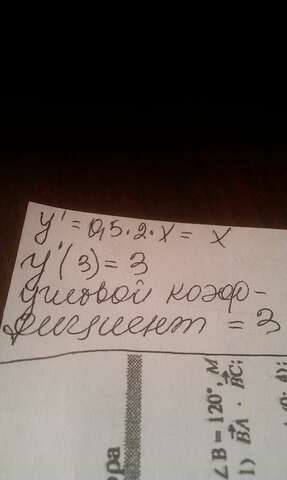 y' = 0,5·2·x = x
y'(3) = 3
угловой коэф-
фициент = 3
ора
∠B = 120°, M
1) BA · BC;